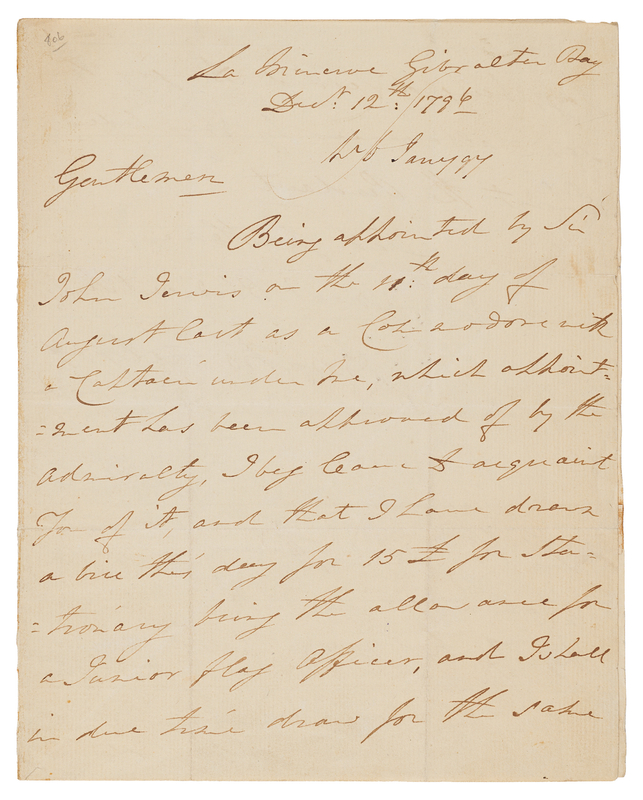 806
La Minerve Gibralter Bay
Decr. 12th: 1796
Janry 97
Gentlemen
Being appointed by Sir
John Jervis on the 11th: day of
August last as a Commodore with
a Captain under me, which appoint=
=ment has been approved of by the
Admiralty, I beg leave to acquaint
You of it, and that I have drawn
a bill this day for 15£ for Sta=
=tionary being the allowance for
a Junior flag Officer, and I shall
in due time draw for the same